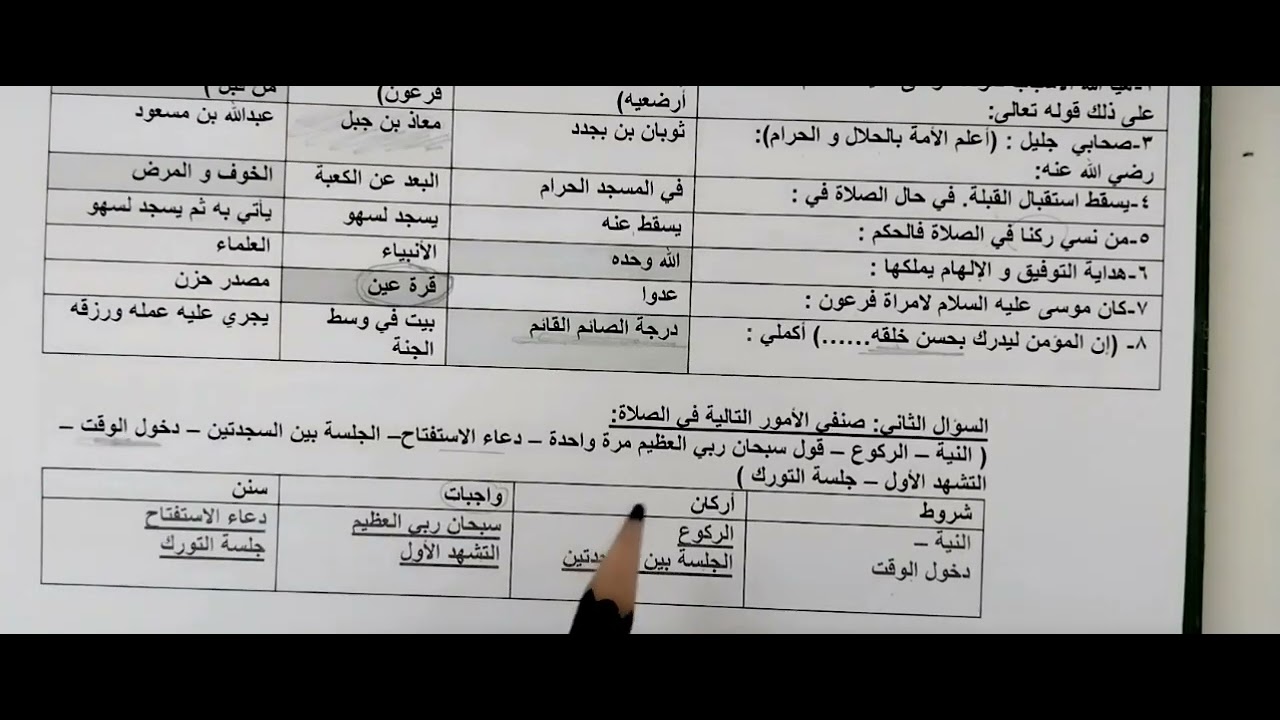 أرضعيه) فرعون)
على ذلك قوله تعالى:
٣-صحابي جليل : (أعلم الأمة بالحلال و الحرام): ثوبان بن بجدد معاذ بن جبل عبدالله بن مسعود
رضي الله عنه:
٤-يسقط استقبال القبلة. في حال الصلاة في : في المسجد الحرام البعد عن الكعبة الخوف و المرض
٥-من نسي ركنا في الصلاة فالحكم : يسقط عنه يسجد لسهو يأتي به ثم يسجد لسهو
٦-هداية التوفيق و الإلهام يملكها : الله وحده الأنبياء العلماء
٧-كان موسى عليه السلام لامراة فرعون : عدوا قرة عين مصدر حزن
٨- (إن المؤمن ليدرك بحسن خلقه......) أكملي : درجة الصائم القائم بيت في وسط يجري عليه عمله ورزقه
الجنة
السؤال الثاني: صنفي الأمور التالية في الصلاة:
( النية – الركوع – قول سبحان ربي العظيم مرة واحدة – دعاء الاستفتاح– الجلسة بين السجدتين – دخول الوقت –
التشهد الأول – جلسة التورك )
شروط أركان واجبات سنن
النية – الركوع سبحان ربي العظيم دعاء الاستفتاح
دخول الوقت الجلسة بين التشهد الأول جلسة التورك